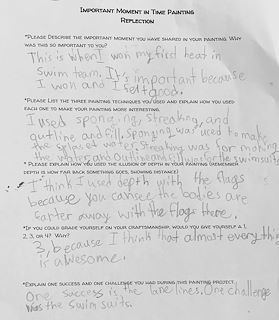 Important Moment in Time Painting
Reflection
*Please Describe the important moment you have shared in your painting. Why
was this so important to you?
This is when I won my first heat in
swim team. It's important because
I won and I felt good.
*Please list the three painting techniques you used and explain how you used
each one to make your painting more interesting.
I used sponging, streaking, and
outline and fill. Sponging was used to make
the splashes of water. Streaking was for making
the water and outline and fill was for the swimsuits
* Please explain how you used the illusion of depth in your painting (remember
depth is how far back something goes, showing distance)
I think I used depth with the flags
because you can see the bodies are
farter away with the flags there.
*If you could grade yourself on your craftsmanship, would you give yourself a 1,
2, 3, or 4? Why?
3, because I think that almost every thing
is awesome.
*Explain one success and one challenge you had during this painting project.
One success is the lane lines. One challenge
was the swim suits.